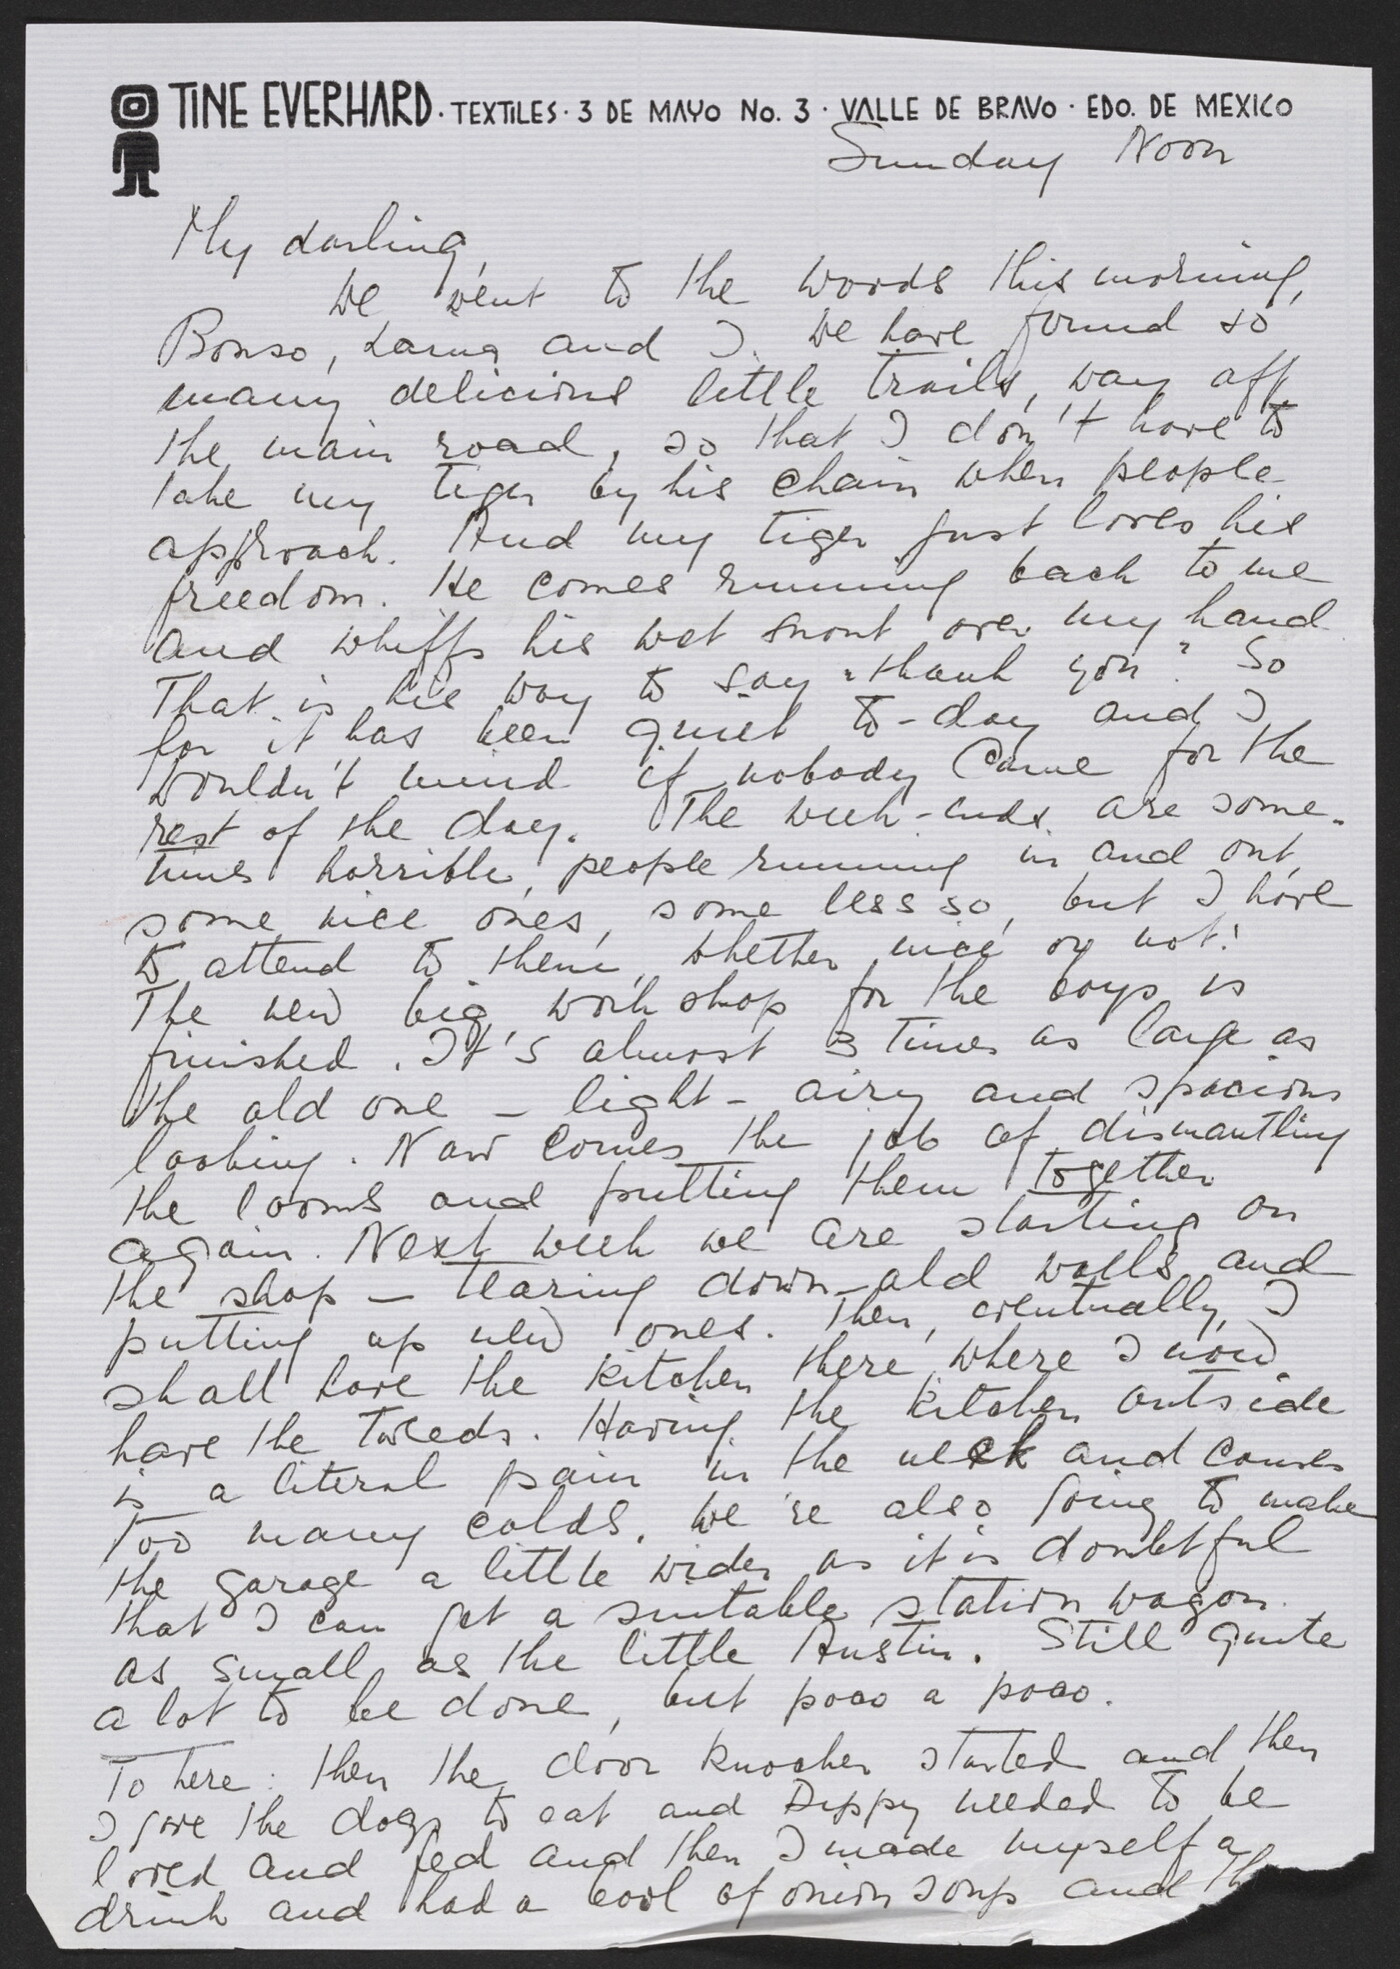 TINE EVERHARD · TEXTILES · 3 DE MAYO No. 3 · VALLE DE BRAVO · EDO. DE MEXICO
Sunday Noon
My darling,
We went to the woods this morning,
Bonso, and I. We have found so
many delicious little trails, way off
the main road, so that I don't have to
take my tiger by his chain when people
approach. And my tiger just loves his
freedom. He comes running back to me
and whiffs his wet snout over my hand.
That is his way to say "thank you". So
far it has been quiet to-day and I
wouldn't mind if nobody came for the
rest of the day. The week-ends are some-
times horrible, people running in and out,
some nice ones, some less so, but I have
to attend to them, whether nice or not!
The new big workshop for the boys is
finished. It's almost 3 times as large as
the old one – light – airy and spacious
looking. Now comes the job of dismantling
the looms and putting them together
again. Next week we are starting on
the shop – tearing down old walls and
putting up new ones. Then, eventually, I
shall have the kitchen there where I now
have the tweeds. Having the kitchen outside
is a literal pain in the neck and causes
too many colds. We're also going to make
the garage a little wider as it is doubtful
that I can get a suitable station wagon
as small as the little Austin. Still quite
a lot to be done, but poco a poco.
To here: then the door knocker started and then
I gave the dogs to eat and Dippy needed to be
loved and fed and then I made myself a
drink and had a bowl of onion soup and